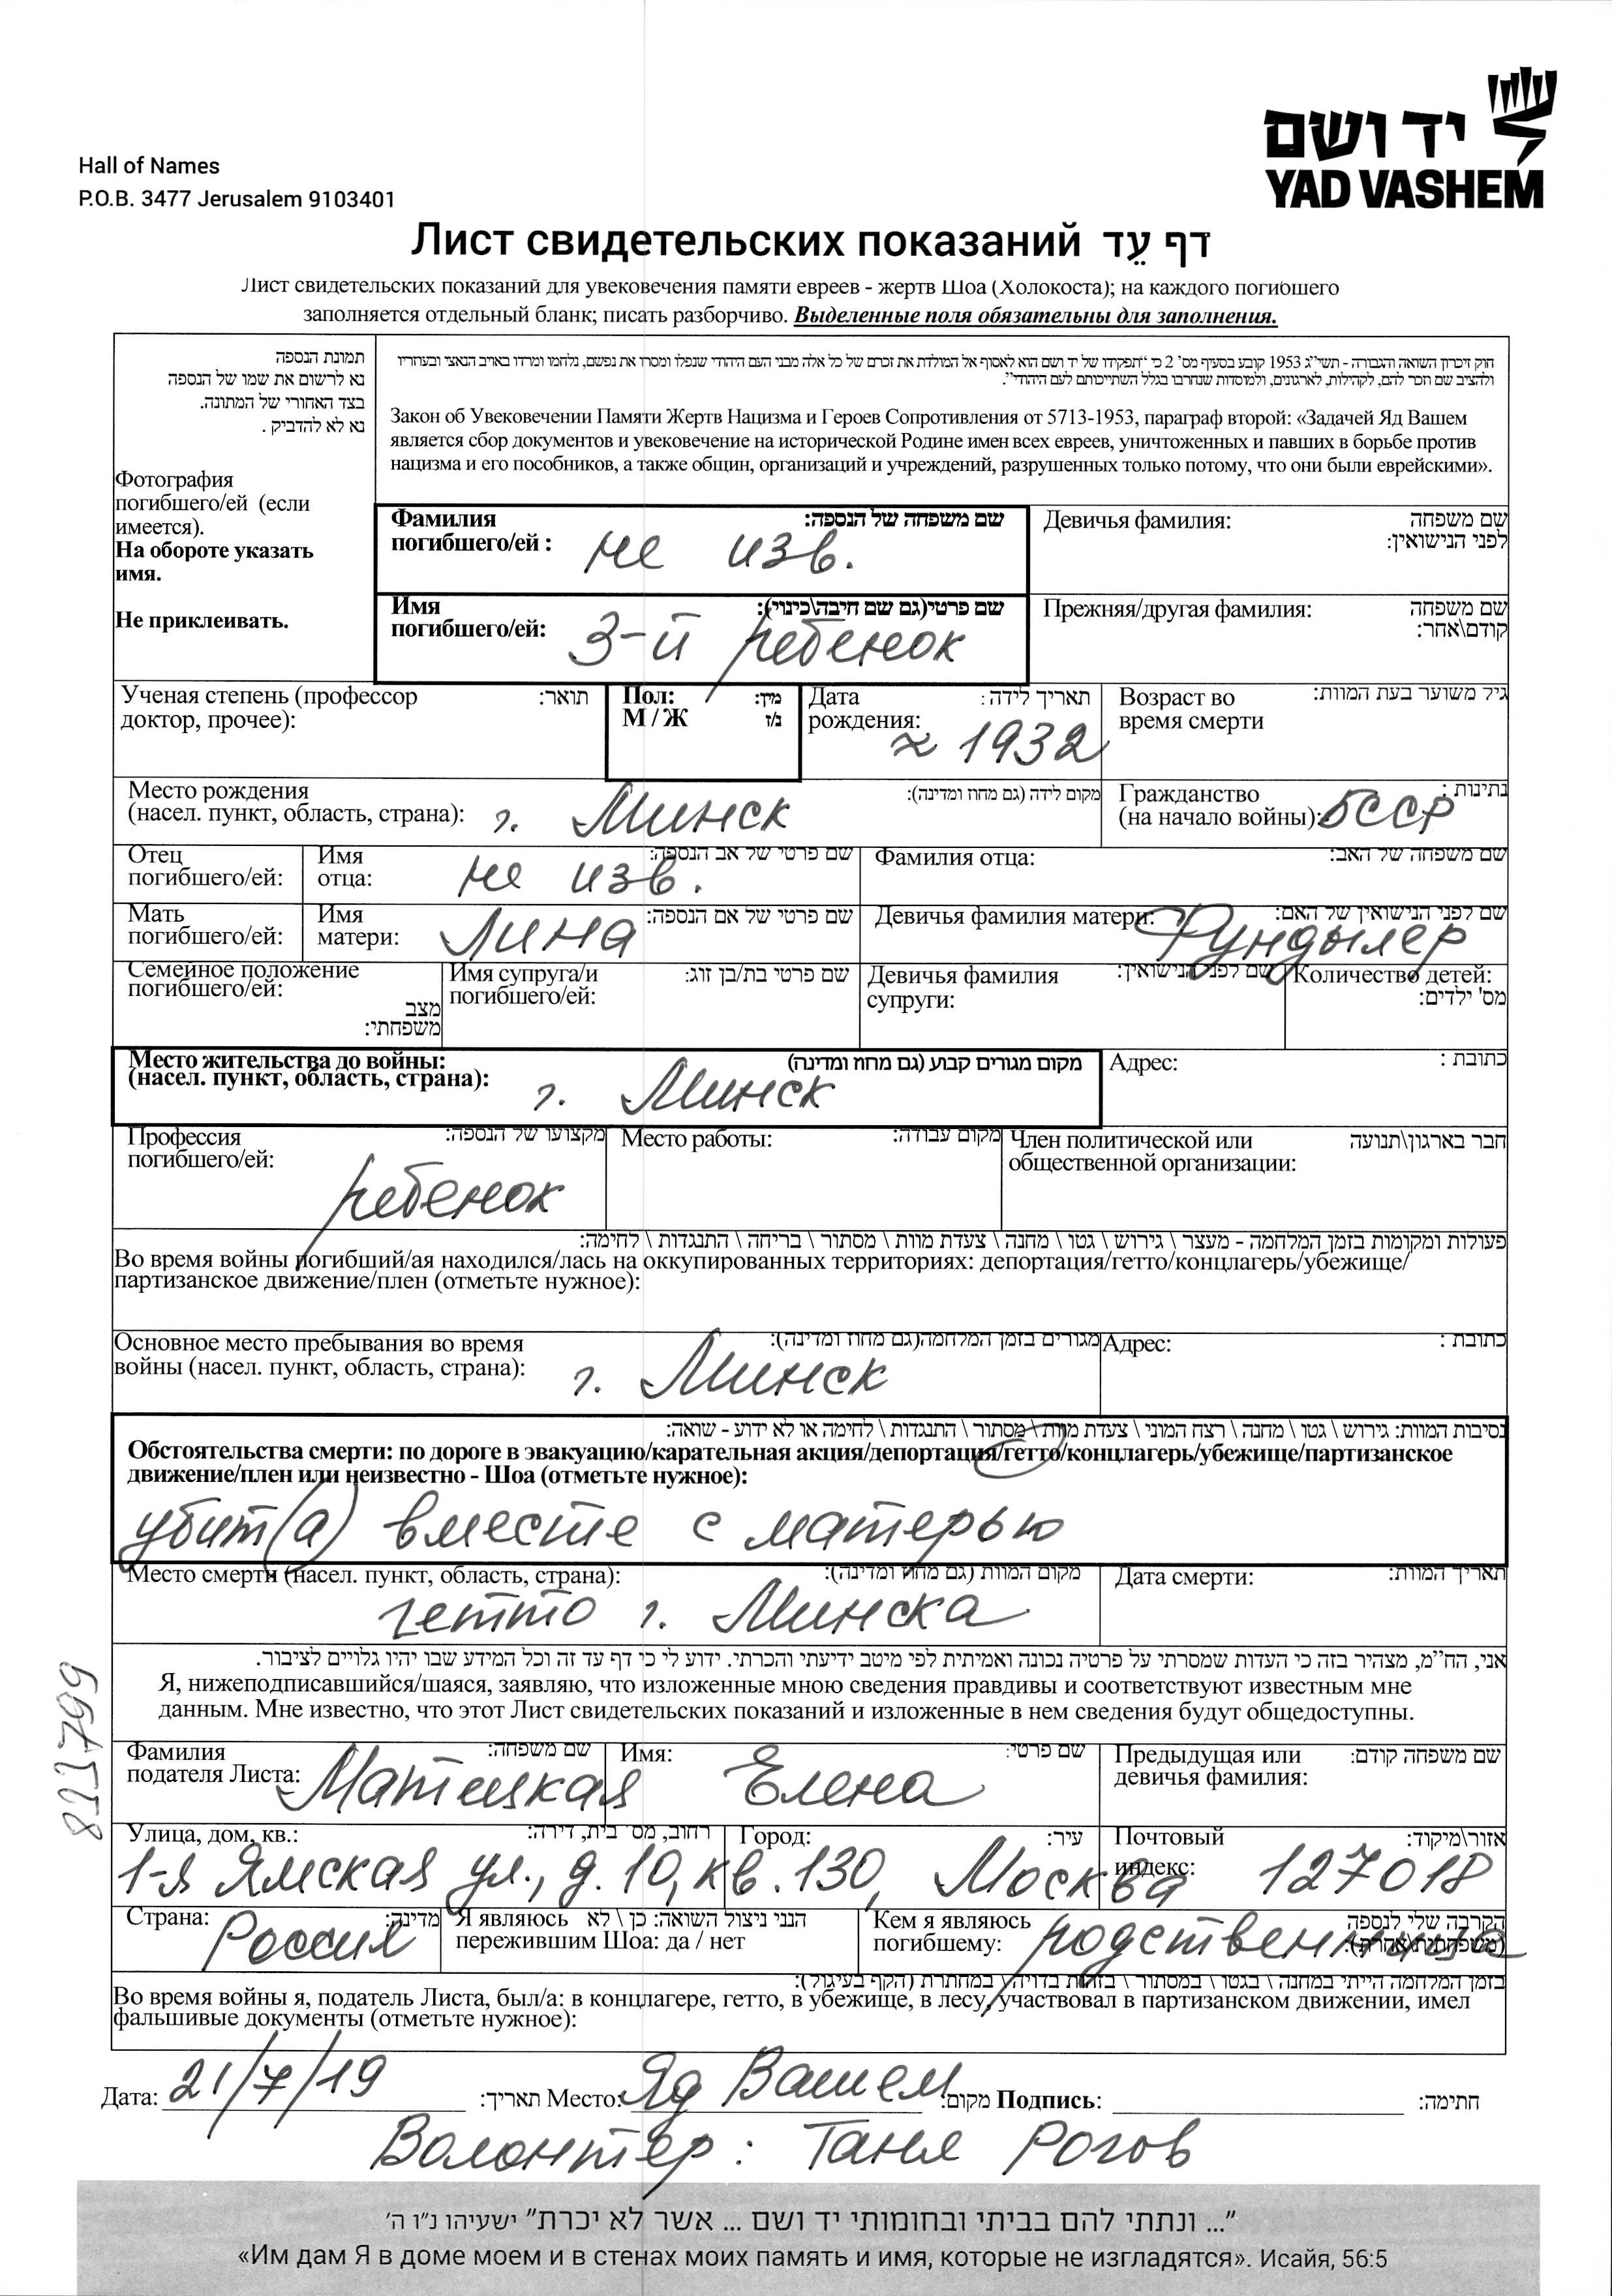 יד ושם
YAD VASHEM
Hall of Names
P.O.B. 3477 Jerusalem 9103401
Лист свидетельских показаний דף עֵד
Лист свидетельских показаний для увековечения памяти евреев - жертв Шоа (Холокоста); на каждого погибшего
заполняется отдельный бланк; писать разборчиво. Выделенные поля обязательны для заполнения.
תמונת הנספה
נא לרשום את שמו של הנספה
בצד האחורי של המתונה.
נא לא להדביק .
Фотография
погибшего/ей (если
имеется).
На обороте указать
имя.
Не приклеивать.
חוק זיכרון השואה והגבורה - תשי"ג 1953 קובע בסעיף מס' 2 כי "תפקידו של יד ושם הוא לאסוף אל המולדת את זכרם של כל אלה מבני העם היהודי שנפלו ומסרו את נפשם, נלחמו ומרדו באויב הנאצי ובעוזריו
ולהציב שם וזכר להם, לקהילות, לארגונים, ולמוסדות שנחרבו בגלל השתייכותם לעם היהודי".
Закон об Увековечении Памяти Жертв Нацизма и Героев Сопротивления от 5713-1953, параграф второй: «Задачей Яд Вашем
является сбор документов и увековечение на исторической Родине имен всех евреев, уничтоженных и павших в борьбе против
нацизма и его пособников, а также общин, организаций и учреждений, разрушенных только потому, что они были еврейскими».
Фамилия שם משפחה של הנספה:
погибшего/ей : не изв.
Девичья фамилия: שם משפחה
לפני הנישואין:
Имя שם פרטי(גם שם חיבה\כינוי):
погибшего/ей: 3-й ребенок
Прежняя/другая фамилия: שם משפחה
קודם\אחר:
Ученая степень (профессор תואר:
доктор, прочее):
Пол: מין:
М / Ж ז/נ
Дата תאריך לידה :
рождения: ≈ 1932
Возраст во גיל משוער בעת המוות:
время смерти
Место рождения מקום לידה (גם מחוז ומדינה):
(насел. пункт, область, страна): г. Минск
Гражданство נתינות :
(на начало войны): БССР
Отец
погибшего/ей:
Имя שם פרטי של אב הנספה:
отца: не изв.
Фамилия отца: שם משפחה של האב:
Мать
погибшего/ей:
Имя שם פרטי של אם הנספה:
матери: Лина
Девичья фамилия матери: שם לפני הנישואין של האם:
Фундылер
Семейное положение
погибшего/ей:
מצב
משפחתי:
Имя супруга/и שם פרטי בת/בן זוג:
погибшего/ей:
Девичья фамилия שם לפני הנישואין:
супруги:
Количество детей:
מס' ילדים:
Место жительства до войны: מקום מגורים קבוע (גם מחוז ומדינה)
(насел. пункт, область, страна): г. Минск
Адрес: כתובת :
Профессия מקצועו של הנספה:
погибшего/ей:
ребенок
Место работы: מקום עבודה:
Член политической или חבר בארגון\תנועה
общественной организации:
פעולות ומקומות בזמן המלחמה - מעצר \ גירוש \ גטו \ מחנה \ צעדת מוות \ מסתור \ בריחה \ התנגדות \ לחימה:
Во время войны погибший/ая находился/лась на оккупированных территориях: депортация/гетто/концлагерь/убежище/
партизанское движение/плен (отметьте нужное):
Основное место пребывания во время מגורים בזמן המלחמה(גם מחוז ומדינה):
войны (насел. пункт, область, страна): г. Минск
Адрес: כתובת :
נסיבות המוות: גירוש \ גטו \ מחנה \ רצח המוני \ צעדת מוות \ מסתור \ התנגדות \ לחימה או לא ידוע - שואה:
Обстоятельства смерти: по дороге в эвакуацию/карательная акция/депортация/гетто/концлагерь/убежище/партизанское
движение/плен или неизвестно - Шоа (отметьте нужное):
убит(а) вместе с матерью
Место смерти (насел. пункт, область, страна): מקום המוות (גם מחוז ומדינה):
гетто г. Минска
Дата смерти: תאריך המוות:
אני, הח"מ, מצהיר בזה כי העדות שמסרתי על פרטיה נכונה ואמיתית לפי מיטב ידיעתי והכרתי. ידוע לי כי דף עד זה וכל המידע שבו יהיו גלויים לציבור.
Я, нижеподписавшийся/шаяся, заявляю, что изложенные мною сведения правдивы и соответствуют известным мне
данным. Мне известно, что этот Лист свидетельских показаний и изложенные в нем сведения будут общедоступны.
Фамилия שם משפחה:
подателя Листа: Матицкая
Имя: שם פרטי:
Елена
Предыдущая или שם משפחה קודם:
девичья фамилия:
Улица, дом, кв.: רחוב, מס' בית, דירה:
1-я Ямская ул., д. 10, кв. 130,
Город: עיר:
Москва
Почтовый אזור\מיקוד:
индекс: 127018
Страна: מדינה:
Россия
Я являюсь הנני ניצול השואה: כן \ לא
пережившим Шоа: да / нет
Кем я являюсь הקרבה שלי לנספה
погибшему: (משפחתית\אחרת):
родственница
בזמן המלחמה הייתי במחנה \ בגטו \ במסתור \ בזהות בדויה \ במחתרת (הקף בעיגול):
Во время войны я, податель Листа, был/а: в концлагере, гетто, в убежище, в лесу, участвовал в партизанском движении, имел
фальшивые документы (отметьте нужное):
Дата: 21/7/19 תאריך: Место: Яд Вашем מקום: Подпись: חתימה:
Волонтер: Таня Рогов
"... ונתתי להם בביתי ובחומותי יד ושם ... אשר לא יכרת" ישעיהו נ"ו ה'
«Им дам Я в доме моем и в стенах моих память и имя, которые не изгладятся». Исайя, 56:5